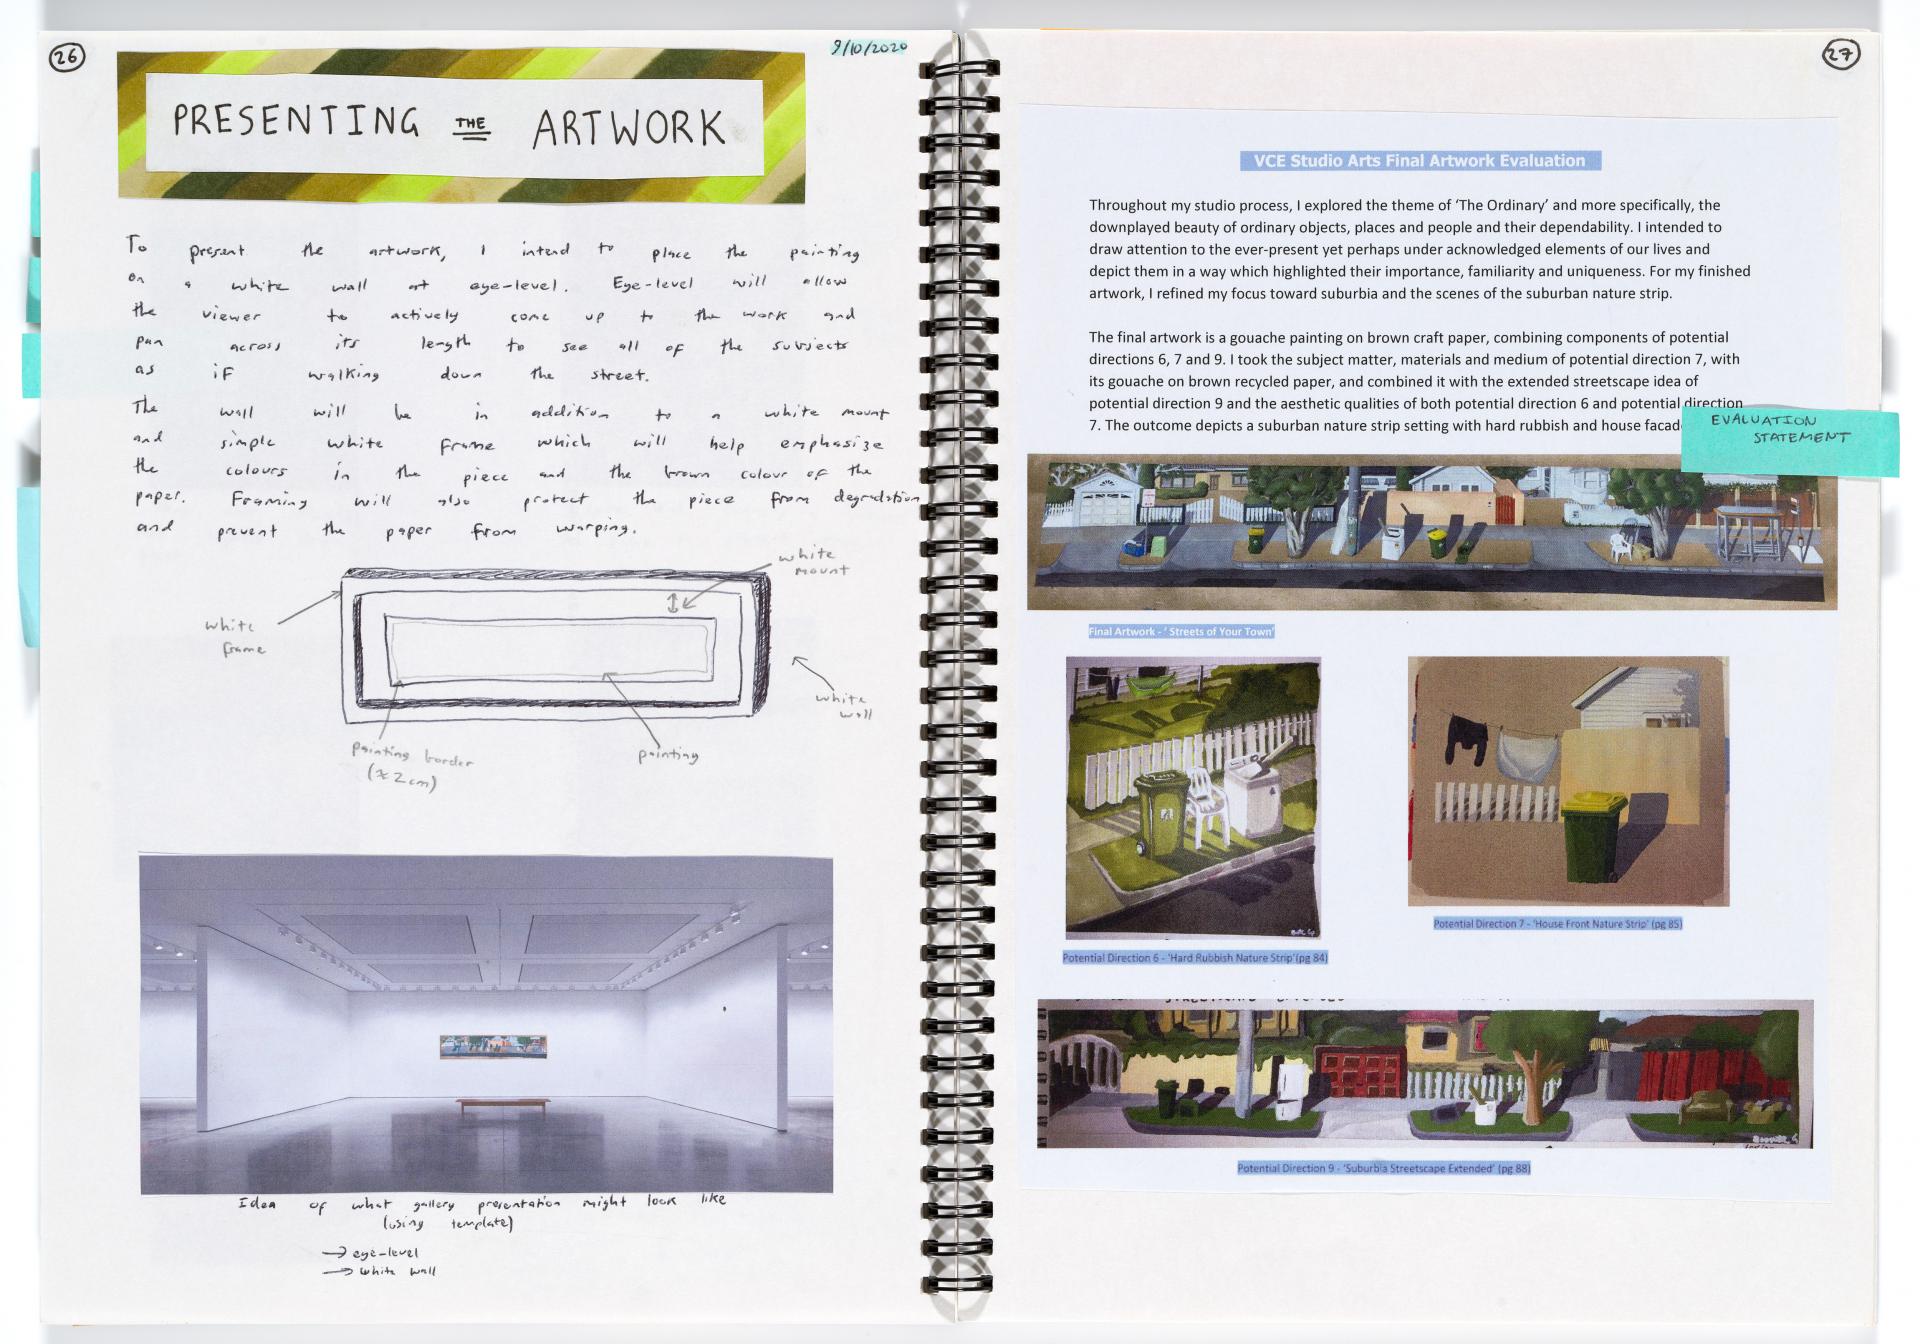 26
9/10/2020
PRESENTING THE ARTWORK
To present the artwork, I intend to place the painting
on a white wall at eye-level. Eye-level will allow
the viewer to actively come up to the work and
pan across its length to see all of the subjects
as if walking down the street.
The wall will be in addition to a white mount
and simple white frame which will help emphasize
the colours in the piece and the brown colour of the
paper. Framing will also protect the piece from degradation
and prevent the paper from warping.
white
mount
white
frame
white
wall
painting border
(≈2cm)
painting
Idea of what gallery presentation might look like
(using template)
→ eye-level
→ white wall
27
VCE Studio Arts Final Artwork Evaluation
Throughout my studio process, I explored the theme of 'The Ordinary' and more specifically, the
downplayed beauty of ordinary objects, places and people and their dependability. I intended to
draw attention to the ever-present yet perhaps under acknowledged elements of our lives and
depict them in a way which highlighted their importance, familiarity and uniqueness. For my finished
artwork, I refined my focus toward suburbia and the scenes of the suburban nature strip.
The final artwork is a gouache painting on brown craft paper, combining components of potential
directions 6, 7 and 9. I took the subject matter, materials and medium of potential direction 7, with
its gouache on brown recycled paper, and combined it with the extended streetscape idea of
potential direction 9 and the aesthetic qualities of both potential direction 6 and potential direction
7. The outcome depicts a suburban nature strip setting with hard rubbish and house facad
EVALUATION
STATEMENT
Final Artwork - ' Streets of Your Town'
Potential Direction 6 - 'Hard Rubbish Nature Strip'(pg 84)
Potential Direction 7 - 'House Front Nature Strip' (pg 85)
Potential Direction 9 - 'Suburbia Streetscape Extended' (pg 88)